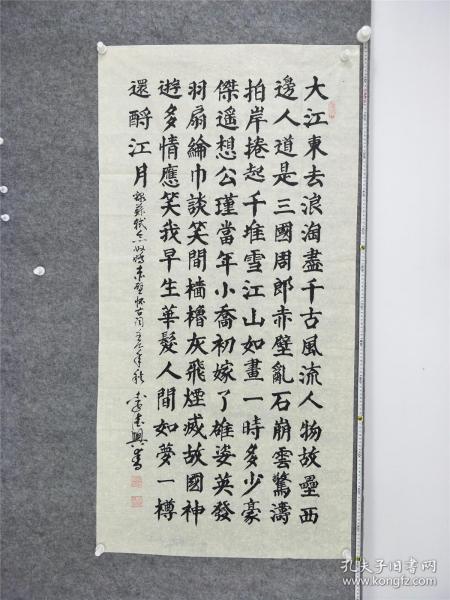 大江東去浪淘盡千古風流人物故壘西
邊人道是三國周郎赤壁亂石崩雲驚濤
拍岸捲起千堆雪江山如畫一時多少豪
傑遥想公瑾當年小喬初嫁了雄姿英發
羽扇綸巾談笑間檣櫓灰飛煙滅故國神
遊多情應笑我早生華髮人間如夢一樽
還酹江月
蘇軾念奴嬌赤壁懷古詞
興書
孔夫子旧书网
www.kongfz.com